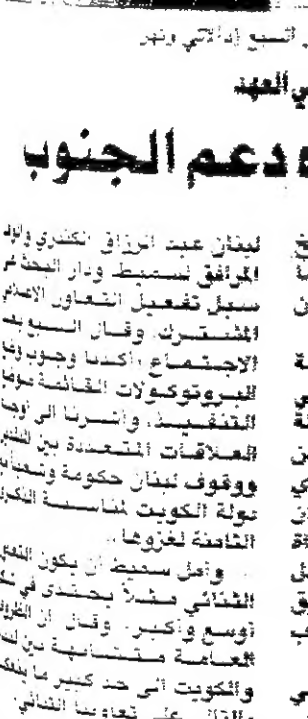 السبع إدلاتي ونهر
ي العهد
دعم الجنوب
لبنان عبد الرزاق الكندري والوفد
المرافق لسميط ودار البحث في
سبل تفعيل التعاون الاعلامي
المشترك. وقال السبع بعد
الاجتماع أكدنا وجوب وضع
البروتوكولات القائمة موضع
التنفيذ، وأشرنا الى أوجه
العلاقات المتعددة بين البلدين
ووقوف لبنان حكومة وشعبا مع
دولة الكويت لمناسبة الذكرى
الثامنة لغزوها.
وأمل سميط أن يكون التعاون
الثنائي مثلاً يحتذى في
أوسع وأكبر. وقال ان الظروف
العامة متشابهة بين
والكويت الى حد كبير
على تعاوننا الثنائي